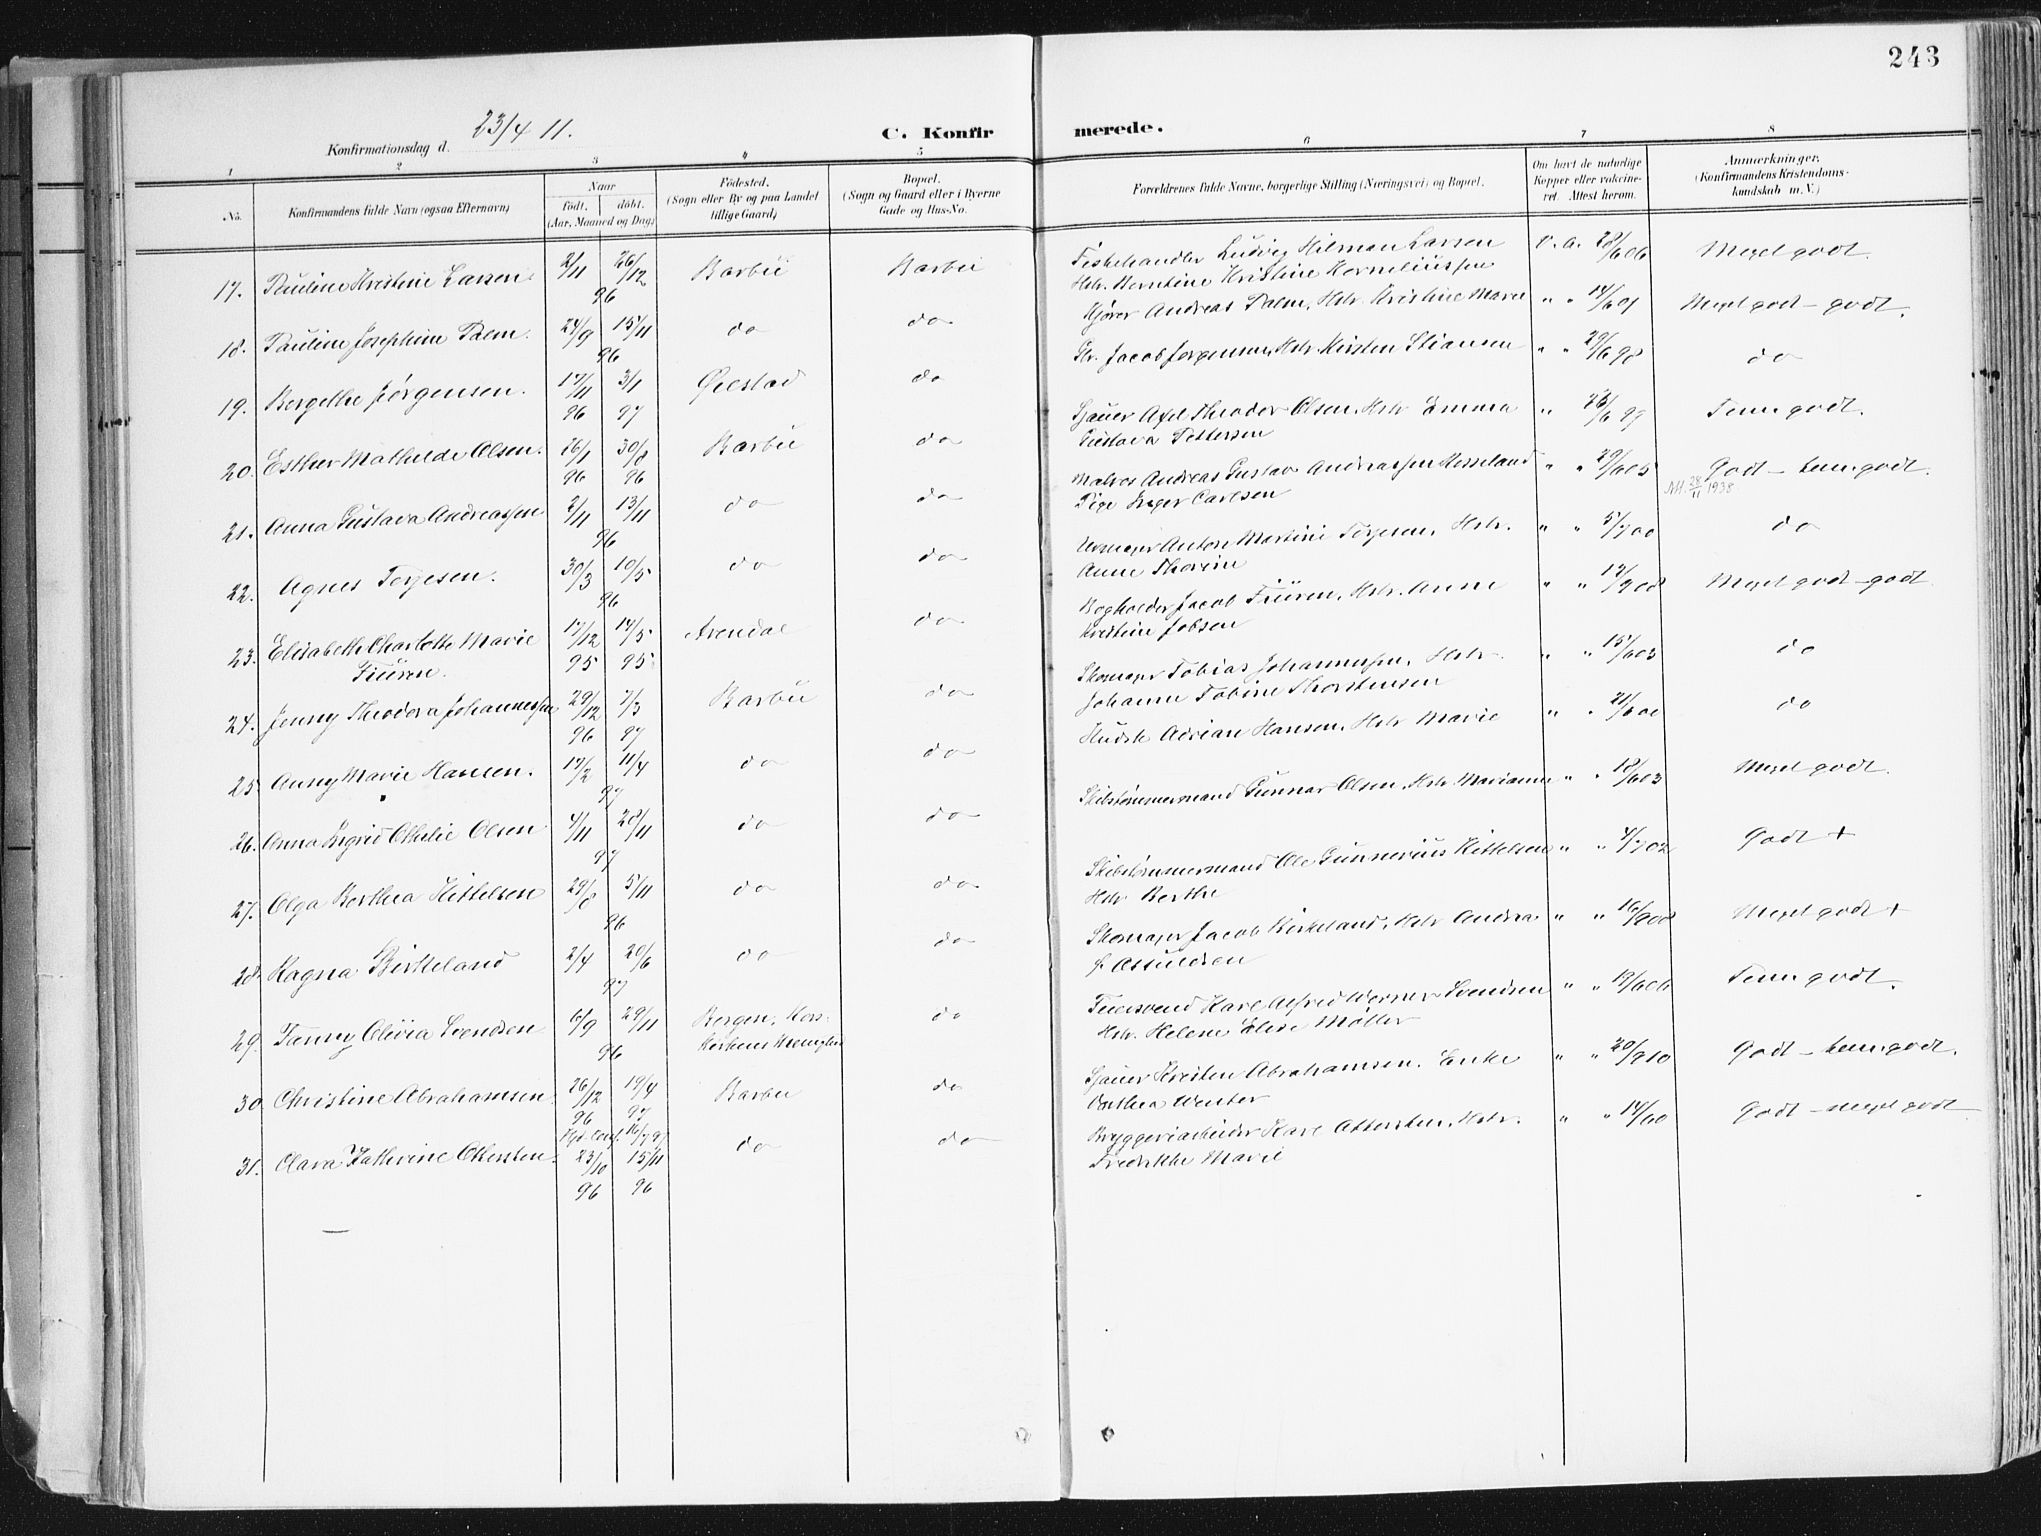 243
Konfirmationsdag d. 23/4 11.
C. Konfirmerede.
1 2 3 4 5 6 7 8
No.
Konfirmandens fulde Navn (ogsaa Efternavn)
Naar
födt. döbt.
(Aar, Maaned og Dag)
Födested.
(Sogn eller By og paa Landet
tillige Gaard)
Bopæl.
(Sogn og Gaard eller i Byerne
Gade og Hus-No.
Forældrenes fulde Navne, borgerlige Stilling (Næringsvei) og Bopæl.
Om havt de naturlige
Kopper eller vakcine-
ret. Attest herom.
Anmærkninger.
(Konfirmandens Kristendoms-
kundskab m. V.)
17. Pauline Kristine Larsen 2/11 26/12 96 Barbu Barbu Fiskehandler Ludvig Hilman Larsen v. a. 28/6 06 Meget godt
Hstr. Berntine Kristine Korneliussen
18. Pauline Josephine Palm. 24/9 15/11 96 do do Kjører Andreas Palm, Hstr. Kristine Marie " " 14/6 01 Meget godt – godt.
19. Bergethe Jørgensen. 17/11 96 3/1 97 Øiestad do Gbr. Jacob Jørgensen, Hstr. Kirsten Stiansen " " 29/6 98 do
20. Esther Mathilde Olsen. 26/1 96 30/8 96 Barbu do Sjauer Axel Theodor Olsen, Hstr Emma " 26/6 99 Temmgodt.
Gustava Pettersen
21. Anna Gustava Andreassen 2/11 13/11 96 do do Matros Andreas Gustav Andreassen Hesseland " " 29/6 05 Godt – temmgodt.
Pige Inger Carlsen
Att. 28/11 1938
22. Agnes Terjesen. 30/3 10/5 96 do do Anton Martini Terjesen, Hstr. " " 5/7 00 do
Anne Thorine
23. Elisabeth Charlotte Marie 17/12 95 14/5 95 Arendal do Bogholder Jacob Fiüren, Hstr. Anne " " 17/9 08 Meget godt – godt
Fiüren. Kristine Jobsen
24. Jenny Theodora Johannessen 29/12 96 7/3 97 Barbu do Skomager Tobias Johannessen, Hstr. " " 15/6 03 do
Johanne Tobine Thorstensen
25. Anny Marie Hansen. 17/2 11/4 97 do do Adrian Hansen, Hstr Marie " " 21/6 00 do
26. Anna Ingrid Othelie Olsen 4/11 28/11 97 do do Skibstømmermand Gunnar Olsen, Hstr. Marianne " " 18/6 03 Meget godt.
27. Olga Berthea Kittelsen 29/8 5/11 96 do do Skibstømmermand Ole Gunnerius Kittelsen " " 4/7 02 Godt +
Hstr Berthe
28. Ragna Birkeland 2/4 20/6 97 do do Skomager Jacob Birkeland, Hstr Andrea " " 16/9 08 Meget godt +
f. Assuldsen
29. Fanny Olivia Svendsen 6/9 29/11 96 Bergen, Kors- do Karl Alfred Werner Svendsen " " 19/6 06 Temmgodt.
kirkens Hstr. Helene Elise Møller
30. Christine Abrahamsen. 26/12 96 19/4 97 Barbu do Sjauer Kristen Abrahamsen, Enke " " 20/9 10 Godt – temmgodt.
Winter
16/7 97
31. Clara Kathrine Ottersten. 23/10 96 15/11 96 do do Bryggeriarbeider Karl Ottersten, Hstr. " " 14/6 0 Godt – meget godt
Fredrikke Marie